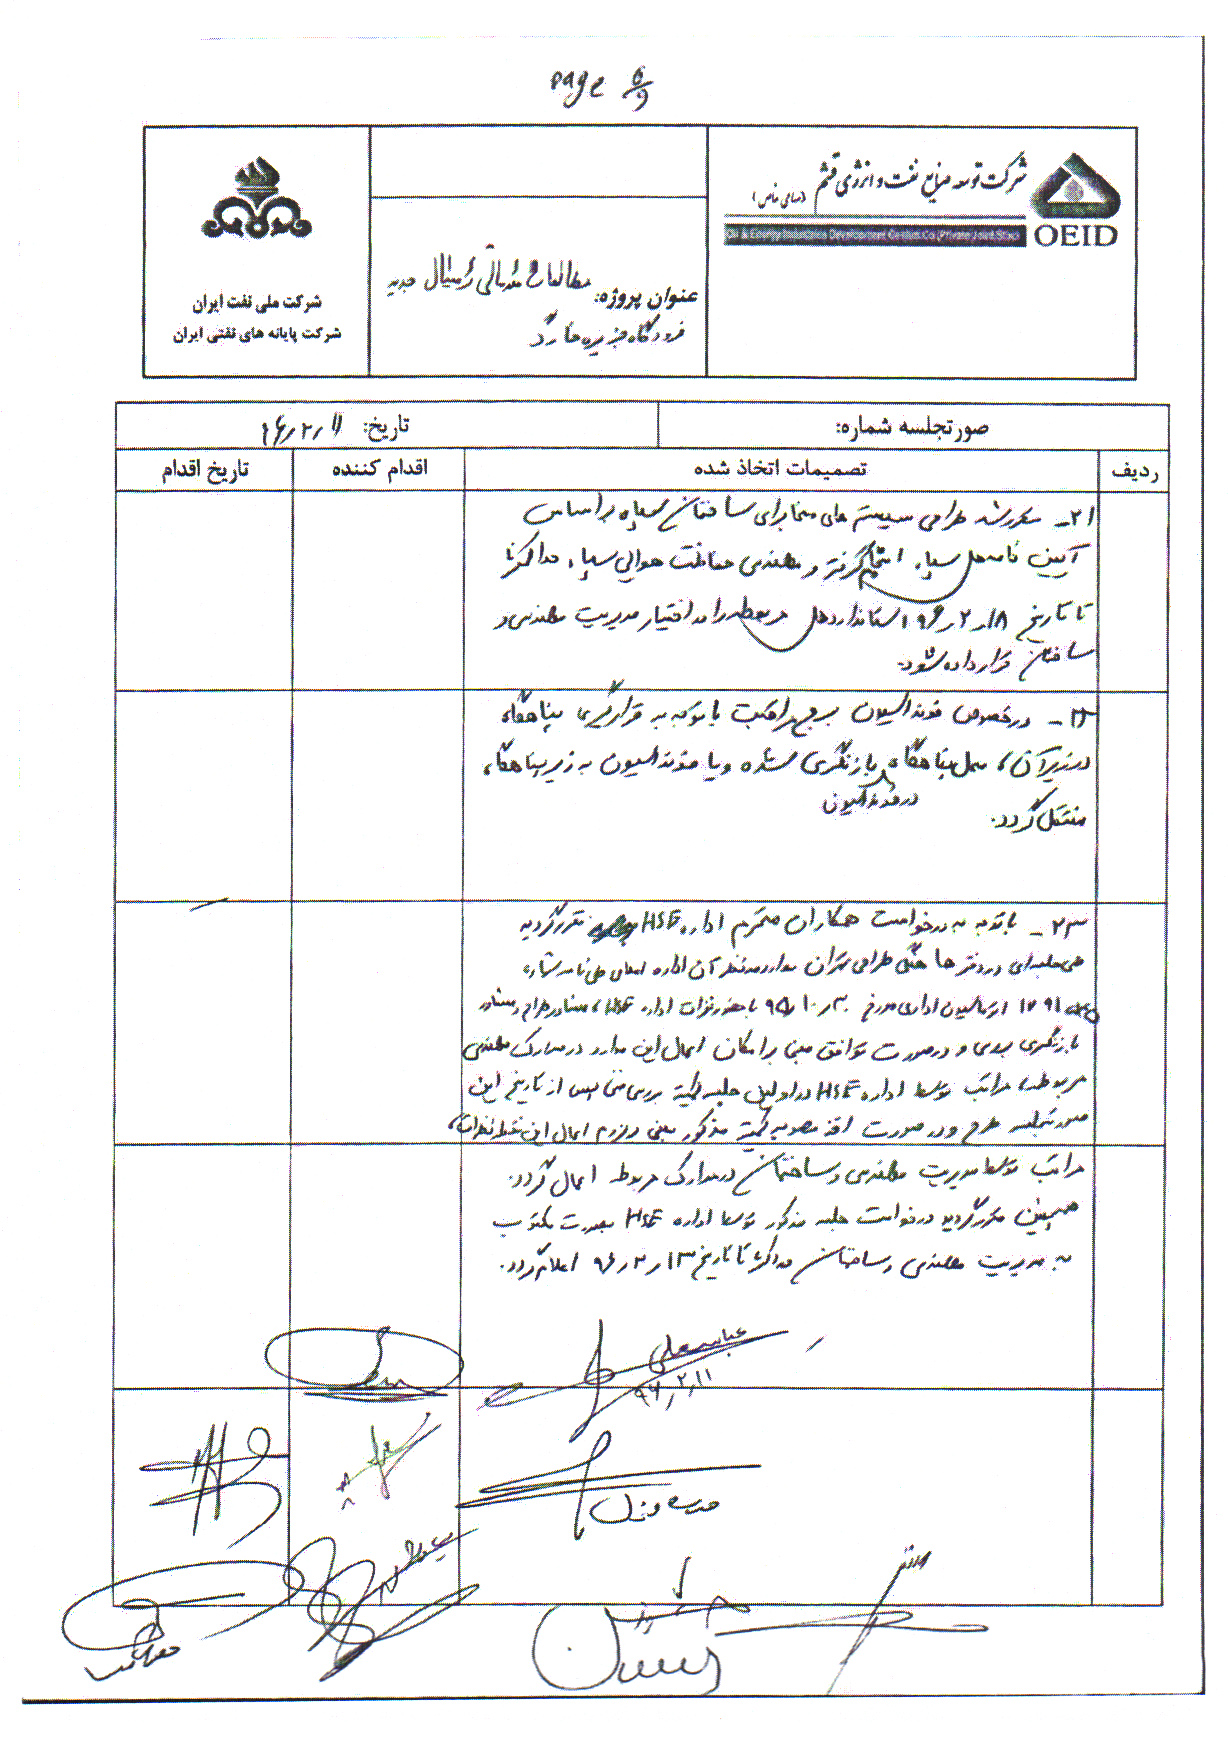 Page 6/9
شرکت توسعه صنایع نفت و انرژی قشم
(سهامی خاص)
Oil & Energy Industries Development Qeshm Co (Private Joint Stock)
OEID
عنوان پروژه: مطالعات مقدماتی ترمینال جدید
فرودگاه جزیره خارگ
شرکت ملی نفت ایران
شرکت پایانه های نفتی ایران
صورتجلسه شماره:
تاریخ: ۹۶٫۲٫۱۱
ردیف
تصمیمات اتخاذ شده
اقدام کننده
تاریخ اقدام
۲۱- مقرر شد طراحی سیستم های مخابرای ساختمان سپاه بر اساس
آیین نامه های سپاه انجام گرفته و مهندسی معاونت هوایی سپاه حداکثر تا
تا تاریخ ۹۶٫۲٫۱۸ استانداردهای مربوطه را در اختیار مدیریت مهندسی و
ساختمان قرار داده شود.
۲۲- در خصوص فونداسیون برج مراقبت با توجه به قرارگیری پناهگاه
در زیر آن، محل پناهگاه بازنگری شده و یا فونداسیون به زیر پناهگاه
در فونداسیون
منتقل گردد.
۲۳- با توجه به درخواست همکاران محترم اداره HSE مقرر گردید
طی جلسه ای در دفتر طراحی تهران موارد مدنظر آن اداره طی نامه شماره
۱۷۹۱ اتوماسیون اداری مورخ ۹۵٫۱۰٫۳۰ با حضور نفرات اداره HSE، مشاور طراح و مشاور
بازنگری بررسی و در صورت توافق مبنی بر امکان اعمال این موارد در مدارک مهندسی
مربوطه، مراتب توسط اداره HSE در اولین جلسه کمیته بررسی پس از تاریخ این
صورتجلسه طرح و در صورت اخذ مصوبه کمیته مذکور مبنی بر لزوم اعمال این نقطه نظرات،
مراتب توسط مدیریت مهندسی و ساختمان در مدارک مربوطه اعمال گردد.
همچنین مقرر گردید درخواست جلسه مذکور توسط اداره HSE بصورت مکتوب
به مدیریت مهندسی و ساختمان حداکثر تا تاریخ ۹۶٫۲٫۱۳ اعلام گردد.
عباسعلی
۹۶٫۲٫۱۱